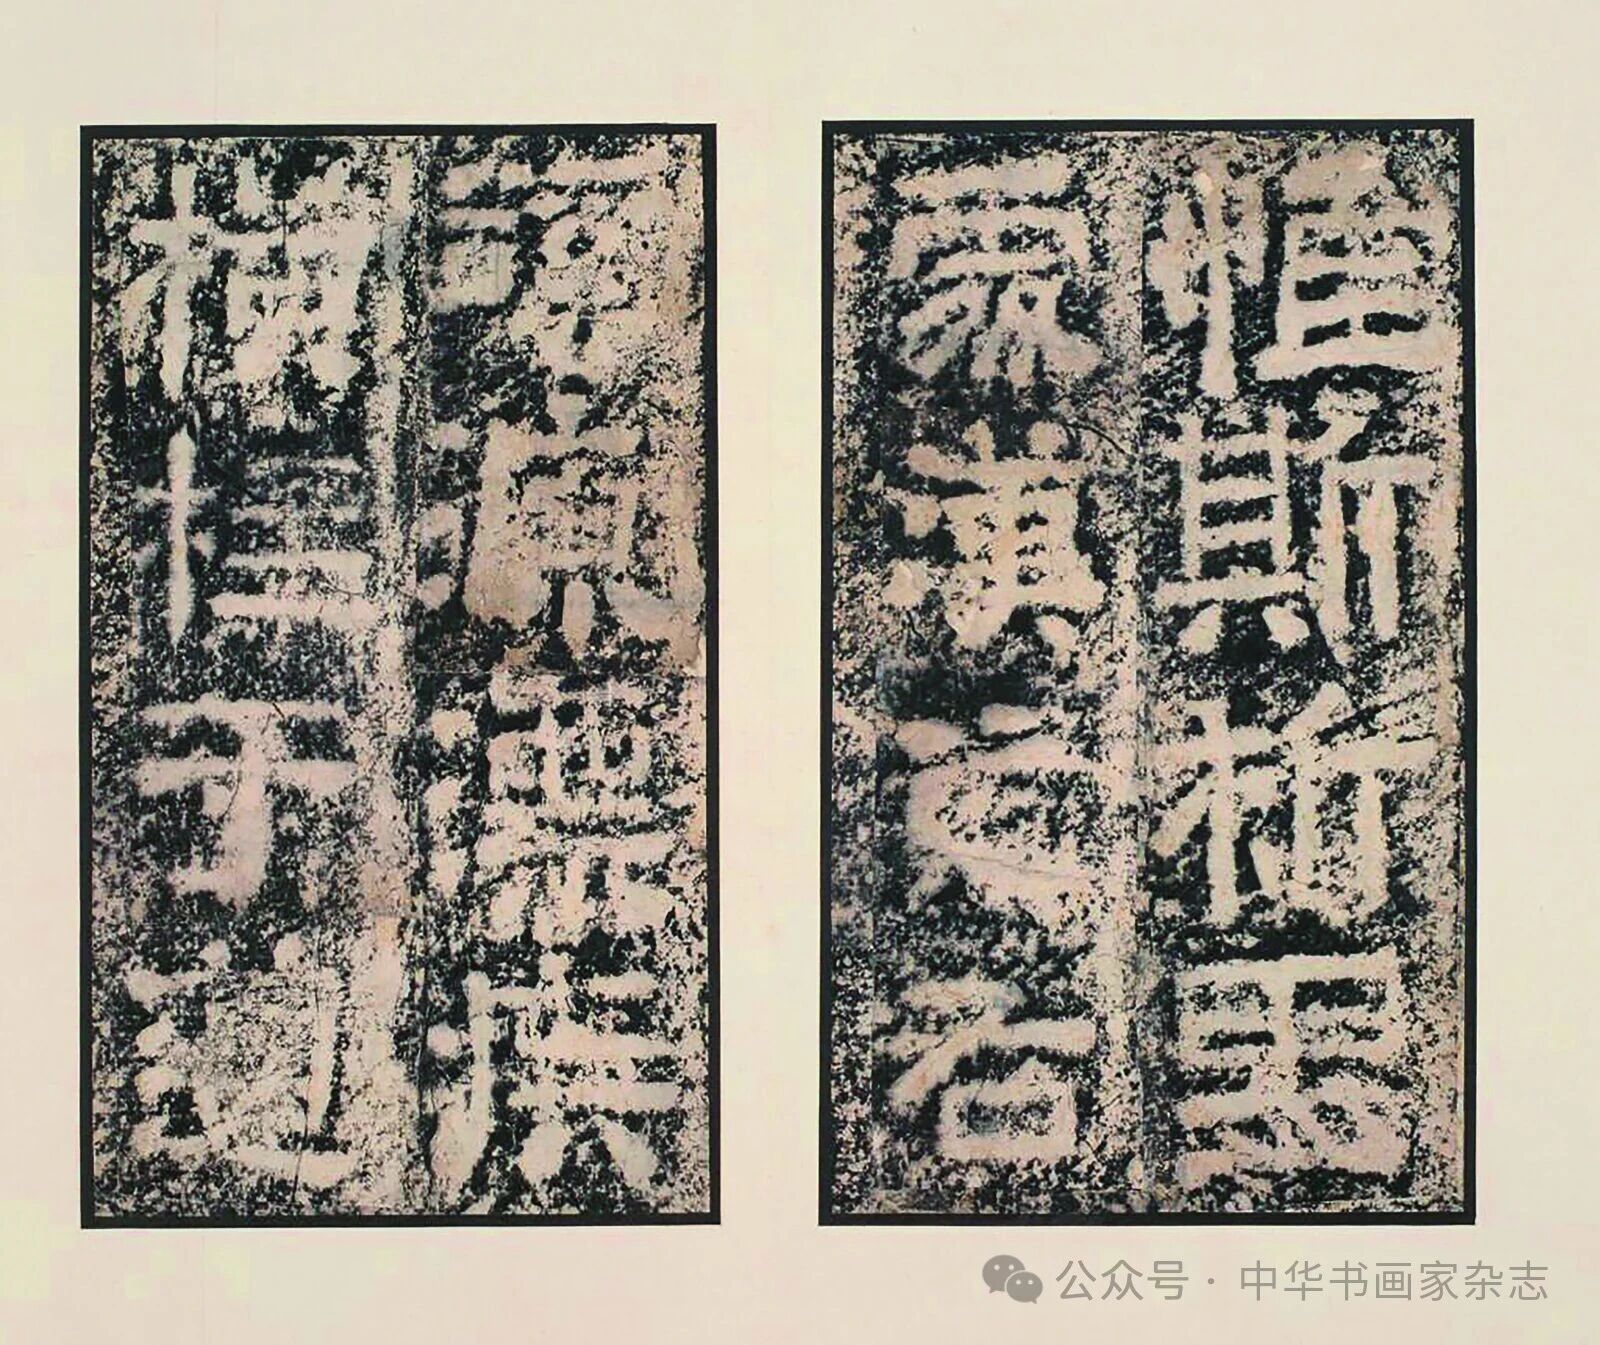 惟斯析里
處漢之右
谿源漂疾
橫柱于道
公众号 · 中华书画家杂志